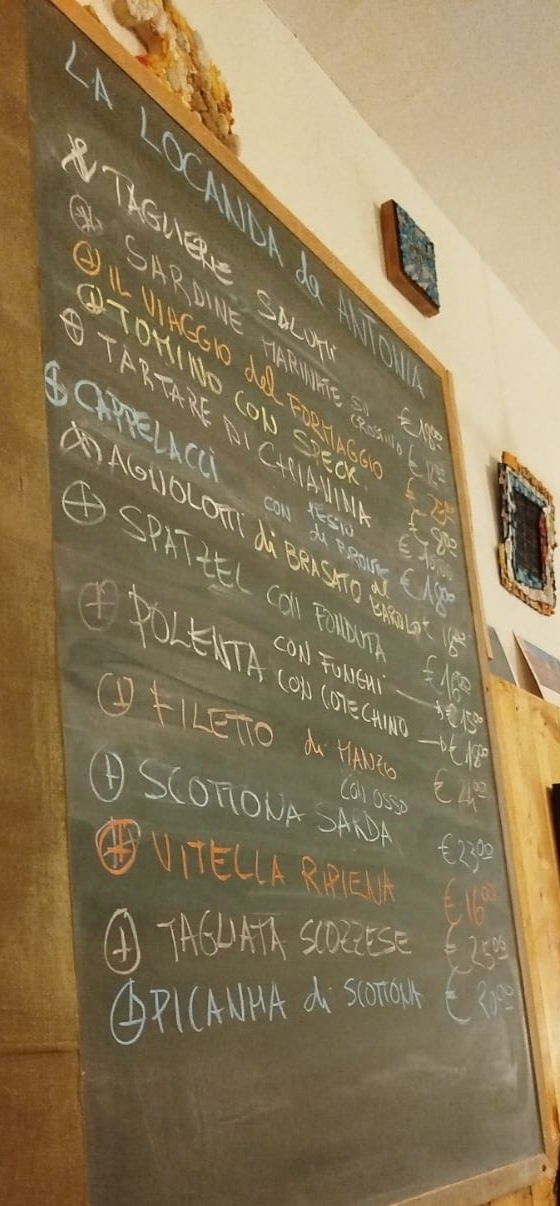 LA LOCANDA da ANTONIA
TAGLIERE SALUMI € 18⁰⁰
SARDINE MARINATE SU CROSTINO €
IL VIAGGIO del FORMAGGIO €
TOMINO CON SPECK € 8⁰⁰
TARTARE DI CHIANINA €
CAPPELLACCI CON PESTO di BRONTE € 18⁰⁰
AGNOLOTTI di BRASATO al BAROLO €
SPATZEL CON FONDUTA € 16⁰⁰
POLENTA CON FUNGHI → € 15⁰⁰
CON COTECHINO → € 18⁰⁰
FILETTO di MANZO € 24⁰⁰
SCOTTONA SARDA CON OSSO € 23⁰⁰
VITELLA RIPIENA € 16⁰⁰
TAGLIATA SCOZZESE € 25⁰⁰
PICANHA di SCOTTONA € 20⁰⁰